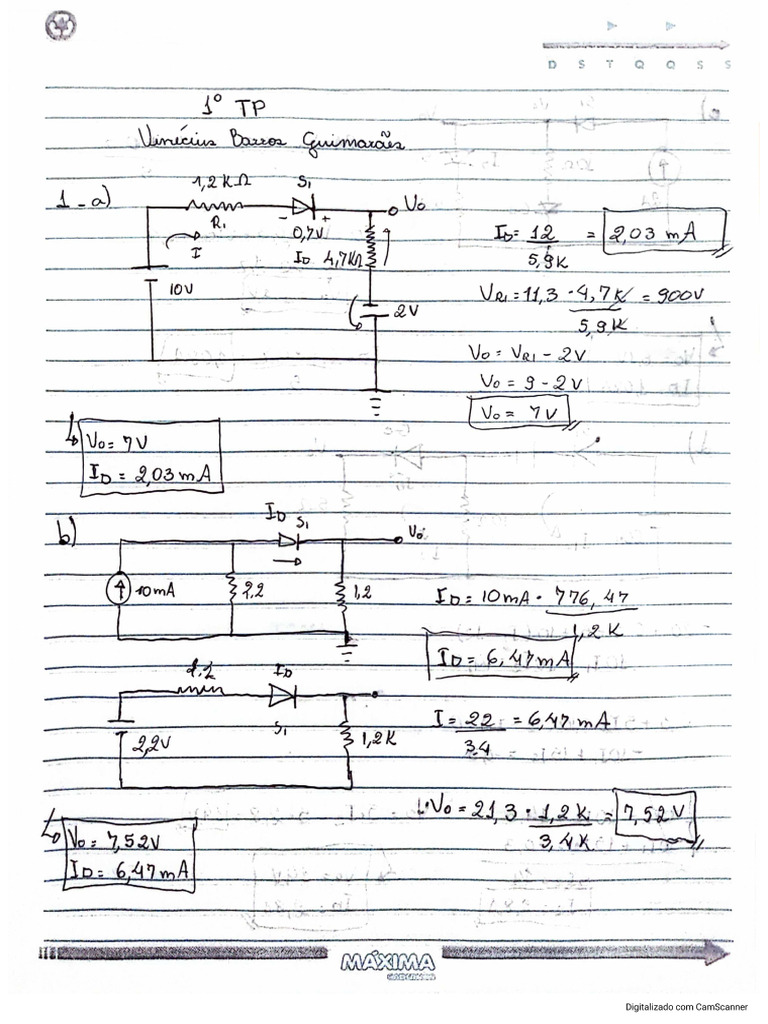 D S T Q Q S S
1º TP
Vinícius Barros Guimarães
1-a)
1,2KΩ
S1
Vo
R1
I
- 0,7V +
ID 4,7KΩ
10V
2V
ID = 12 / 5,9K = 2,03 mA
VR1 = 11,3 · 4,7K / 5,9K = 900V
Vo = VR1 - 2V
Vo = 9 - 2V
Vo = 7V
Vo = 7V
ID = 2,03 mA
b)
ID S1
Vo
10mA
2,2
1,2
ID = 10mA · 776,47 / 1,2K
ID = 6,47mA
2,2
ID
S1
2,2V
1,2K
I = 22 / 3.4 = 6,47 mA
Vo = 21,3 · 1,2K / 3,4K = 7,52V
Vo = 7,52V
ID = 6,47mA
MÁXIMA
CADERNOS
Digitalizado com CamScanner